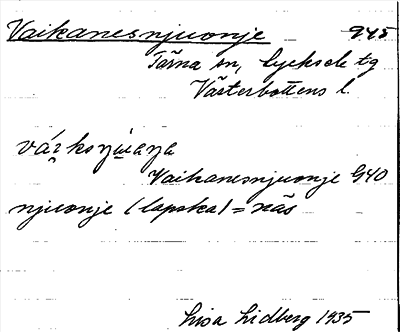 Vaikanesnjuonje 945
Tärna sn, Lycksele tg
Västerbottens l.
Vaikanesnjuonje G40
njuonje (lapska) = näs
Lisa Lidberg 1935